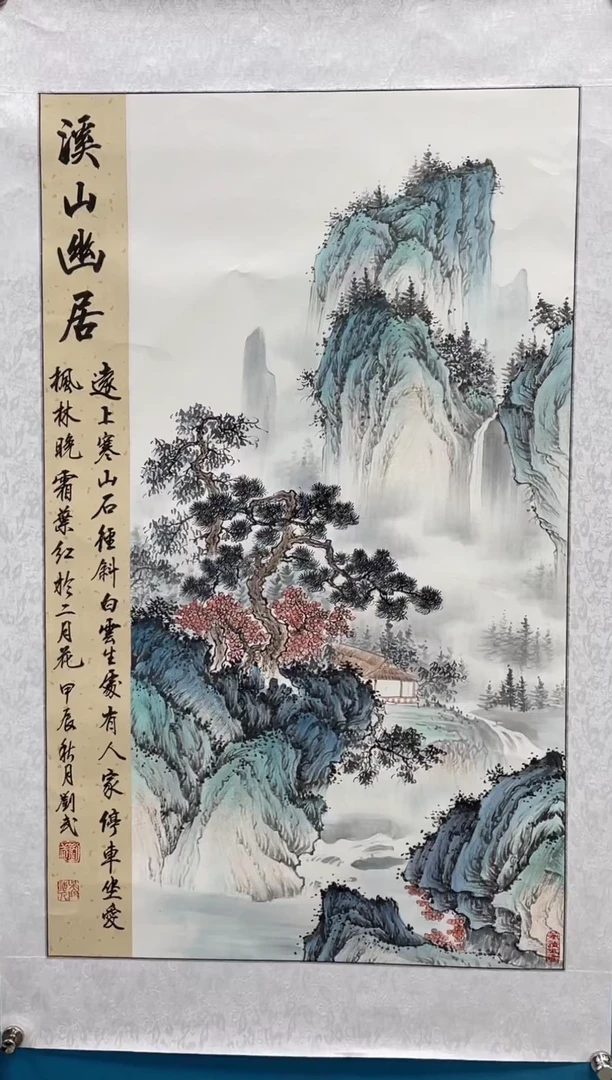 溪山幽居
遠上寒山石徑斜白雲生處有人家停車坐愛
楓林晚霜葉红於二月花甲辰秋月劉武